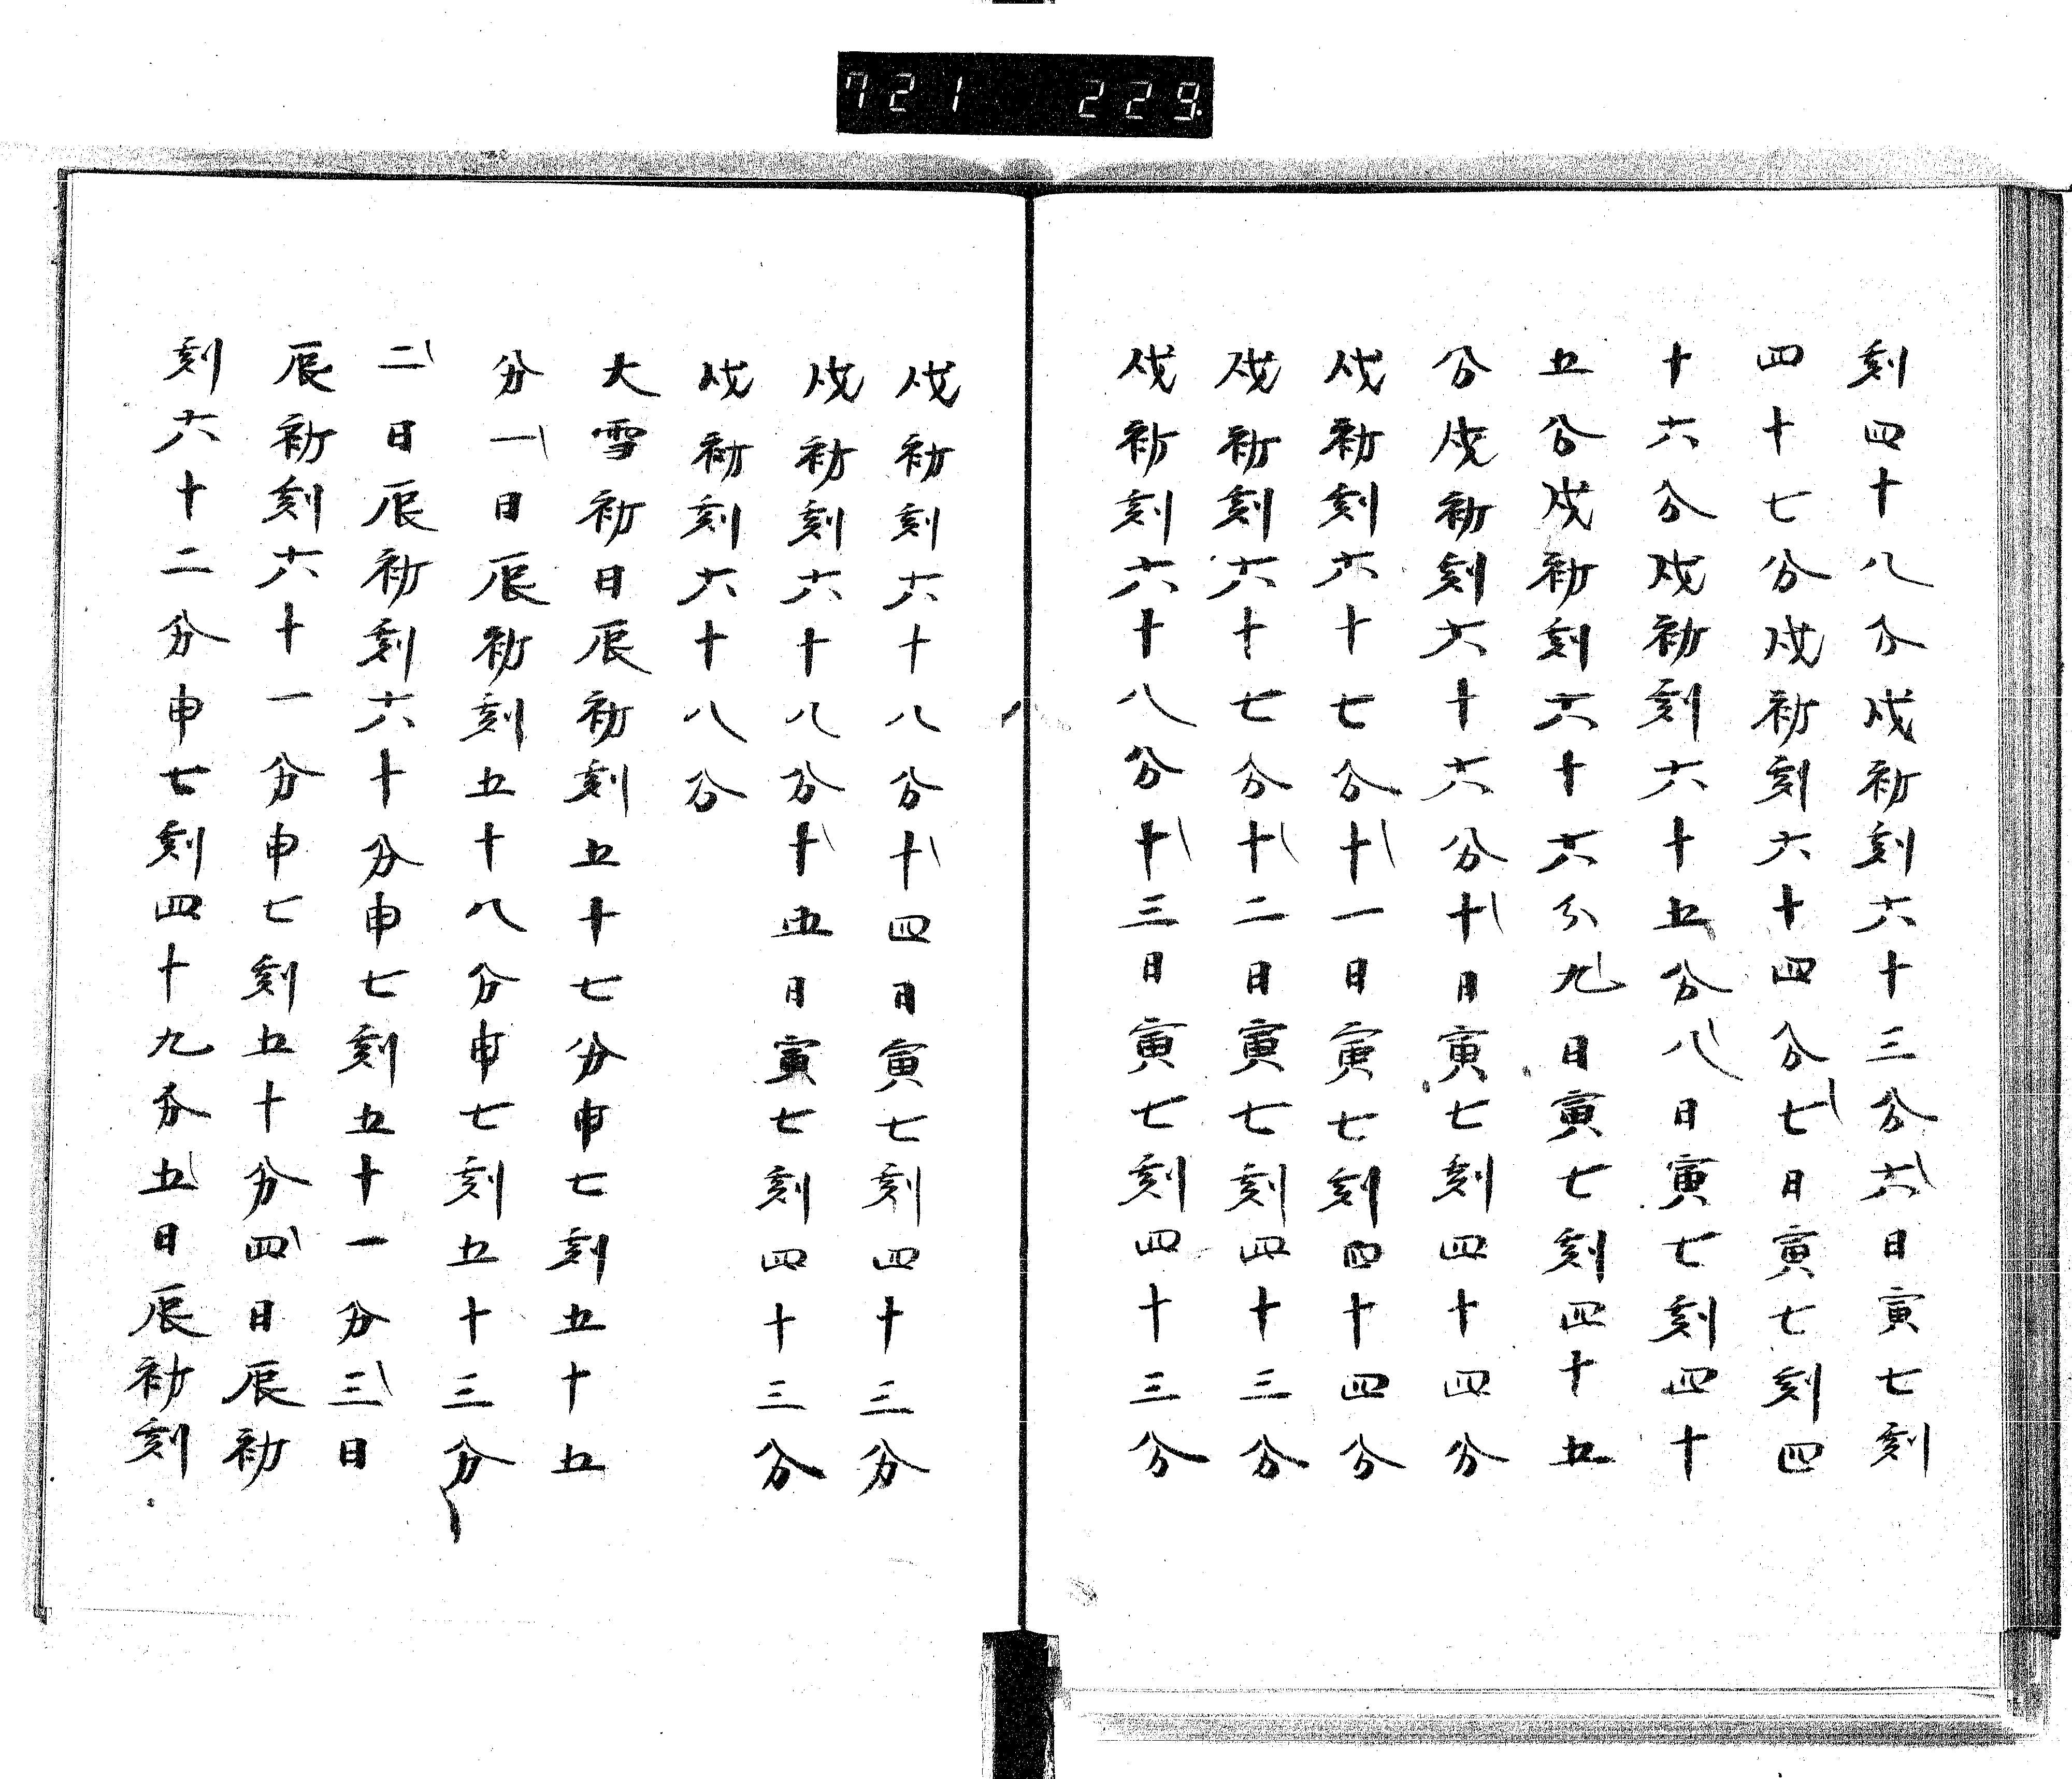 721 229
刻四十八分戌初刻六十三分六日寅七刻
四十七分戌初刻六十四分七日寅七刻四
十六分戌初刻六十五分八日寅七刻四十
五分戌初刻六十六分九日寅七刻四十五
分戌初刻六十六分十日寅七刻四十四分
戌初刻六十七分十一日寅七刻四十四分
戌初刻六十七分十二日寅七刻四十三分
戌初刻六十八分十三日寅七刻四十三分
戌初刻六十八分十四日寅七刻四十三分
戌初刻六十八分十五日寅七刻四十三分
戌初刻六十八分
大雪初日辰初刻五十七分申七刻五十五
分一日辰初刻五十八分申七刻五十三分
二日辰初刻六十分申七刻五十一分三日
辰初刻六十一分申七刻五十分四日辰初
刻六十二分申七刻四十九分五日辰初刻